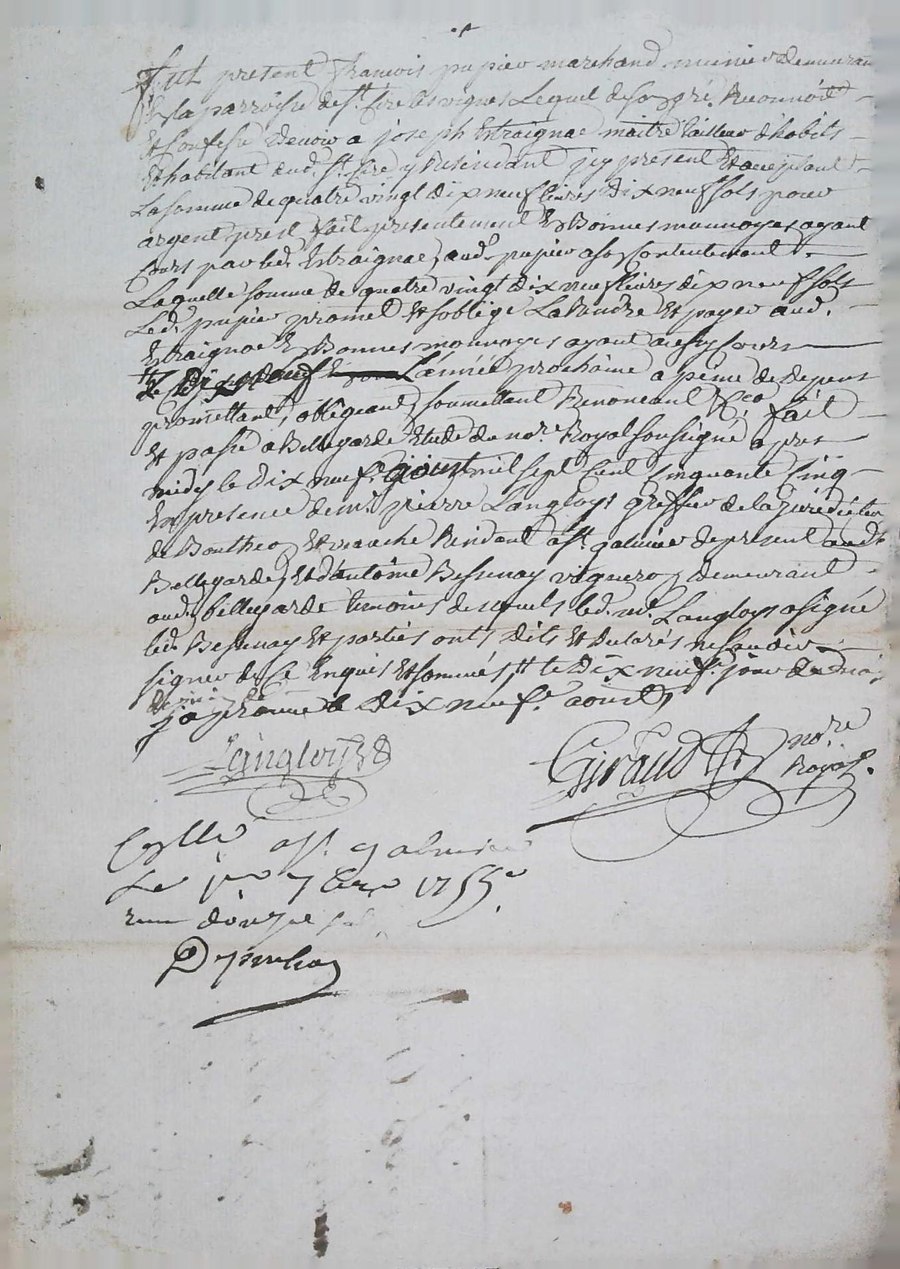 Fut present Francois papier marchand munier demeurant
En la parroisse de st. Cire les vignes Lequel de son gré Reconnoit
Et Confesse devoir a joseph Entraignac maitre tailleur d'habits
Et habitant aud. st. Cire y Residant icy present Et acceptant
La somme de quatre vingt dix neuf livres dix neuf sols pour
argent prest fait presentement En Bonnes monnoyes ayant
Cours par led. Entraignac aud. papier a son Contentement
Laquelle somme de quatre vingt dix neuf livres dix neuf sols
Led. papier promet Et soblige La Rendre Et payer aud.
Entraignac En Bonnes monnoyes ayant aussy Cours
L'année prochaine a peine de depens
promettant, obligeant, soumettant Renoncant &ca fait
Et passé a Bellegarde Etude du nore. Royal soussigné apres
midy le dix neuf aoust mil sept Cent Cinquante Cinq
En presence de mr. pierre Langloys greffier de la jurediction
de Boutheon Et Residant a st. galmier de present aud.
Bellegarde, Et d'antoine Bessenay vigneron demeurant
aud. Bellegarde temoins desquels led. mr. Langloys a signé
led. Bessenay Et parties ont dits Et declarés ne scavoir
signer de Ce Enquis Et sommés le dix neuf. jour du mois
japrouve le dix neuf. aoust
Langloys
Giraud nore
Royal.
Collé a st. galmier
Le 1er 7bre 1755.
recu douze sols